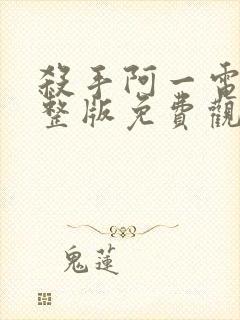 殺手阿一電
整版免費觀
鬼蓮